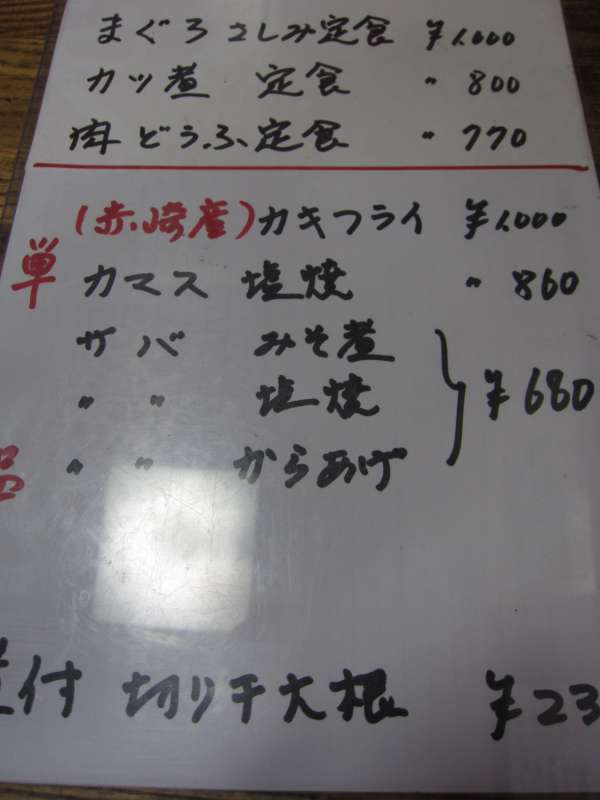 まぐろ さしみ定食 ¥1,000
カツ煮 定食 〃 800
肉どうふ定食 〃 770
(赤崎産)カキフライ ¥1,000
単品
カマス 塩焼 〃 860
サバ みそ煮
〃 〃 塩焼 ¥680
〃 〃 からあげ
付 切り干大根 ¥23